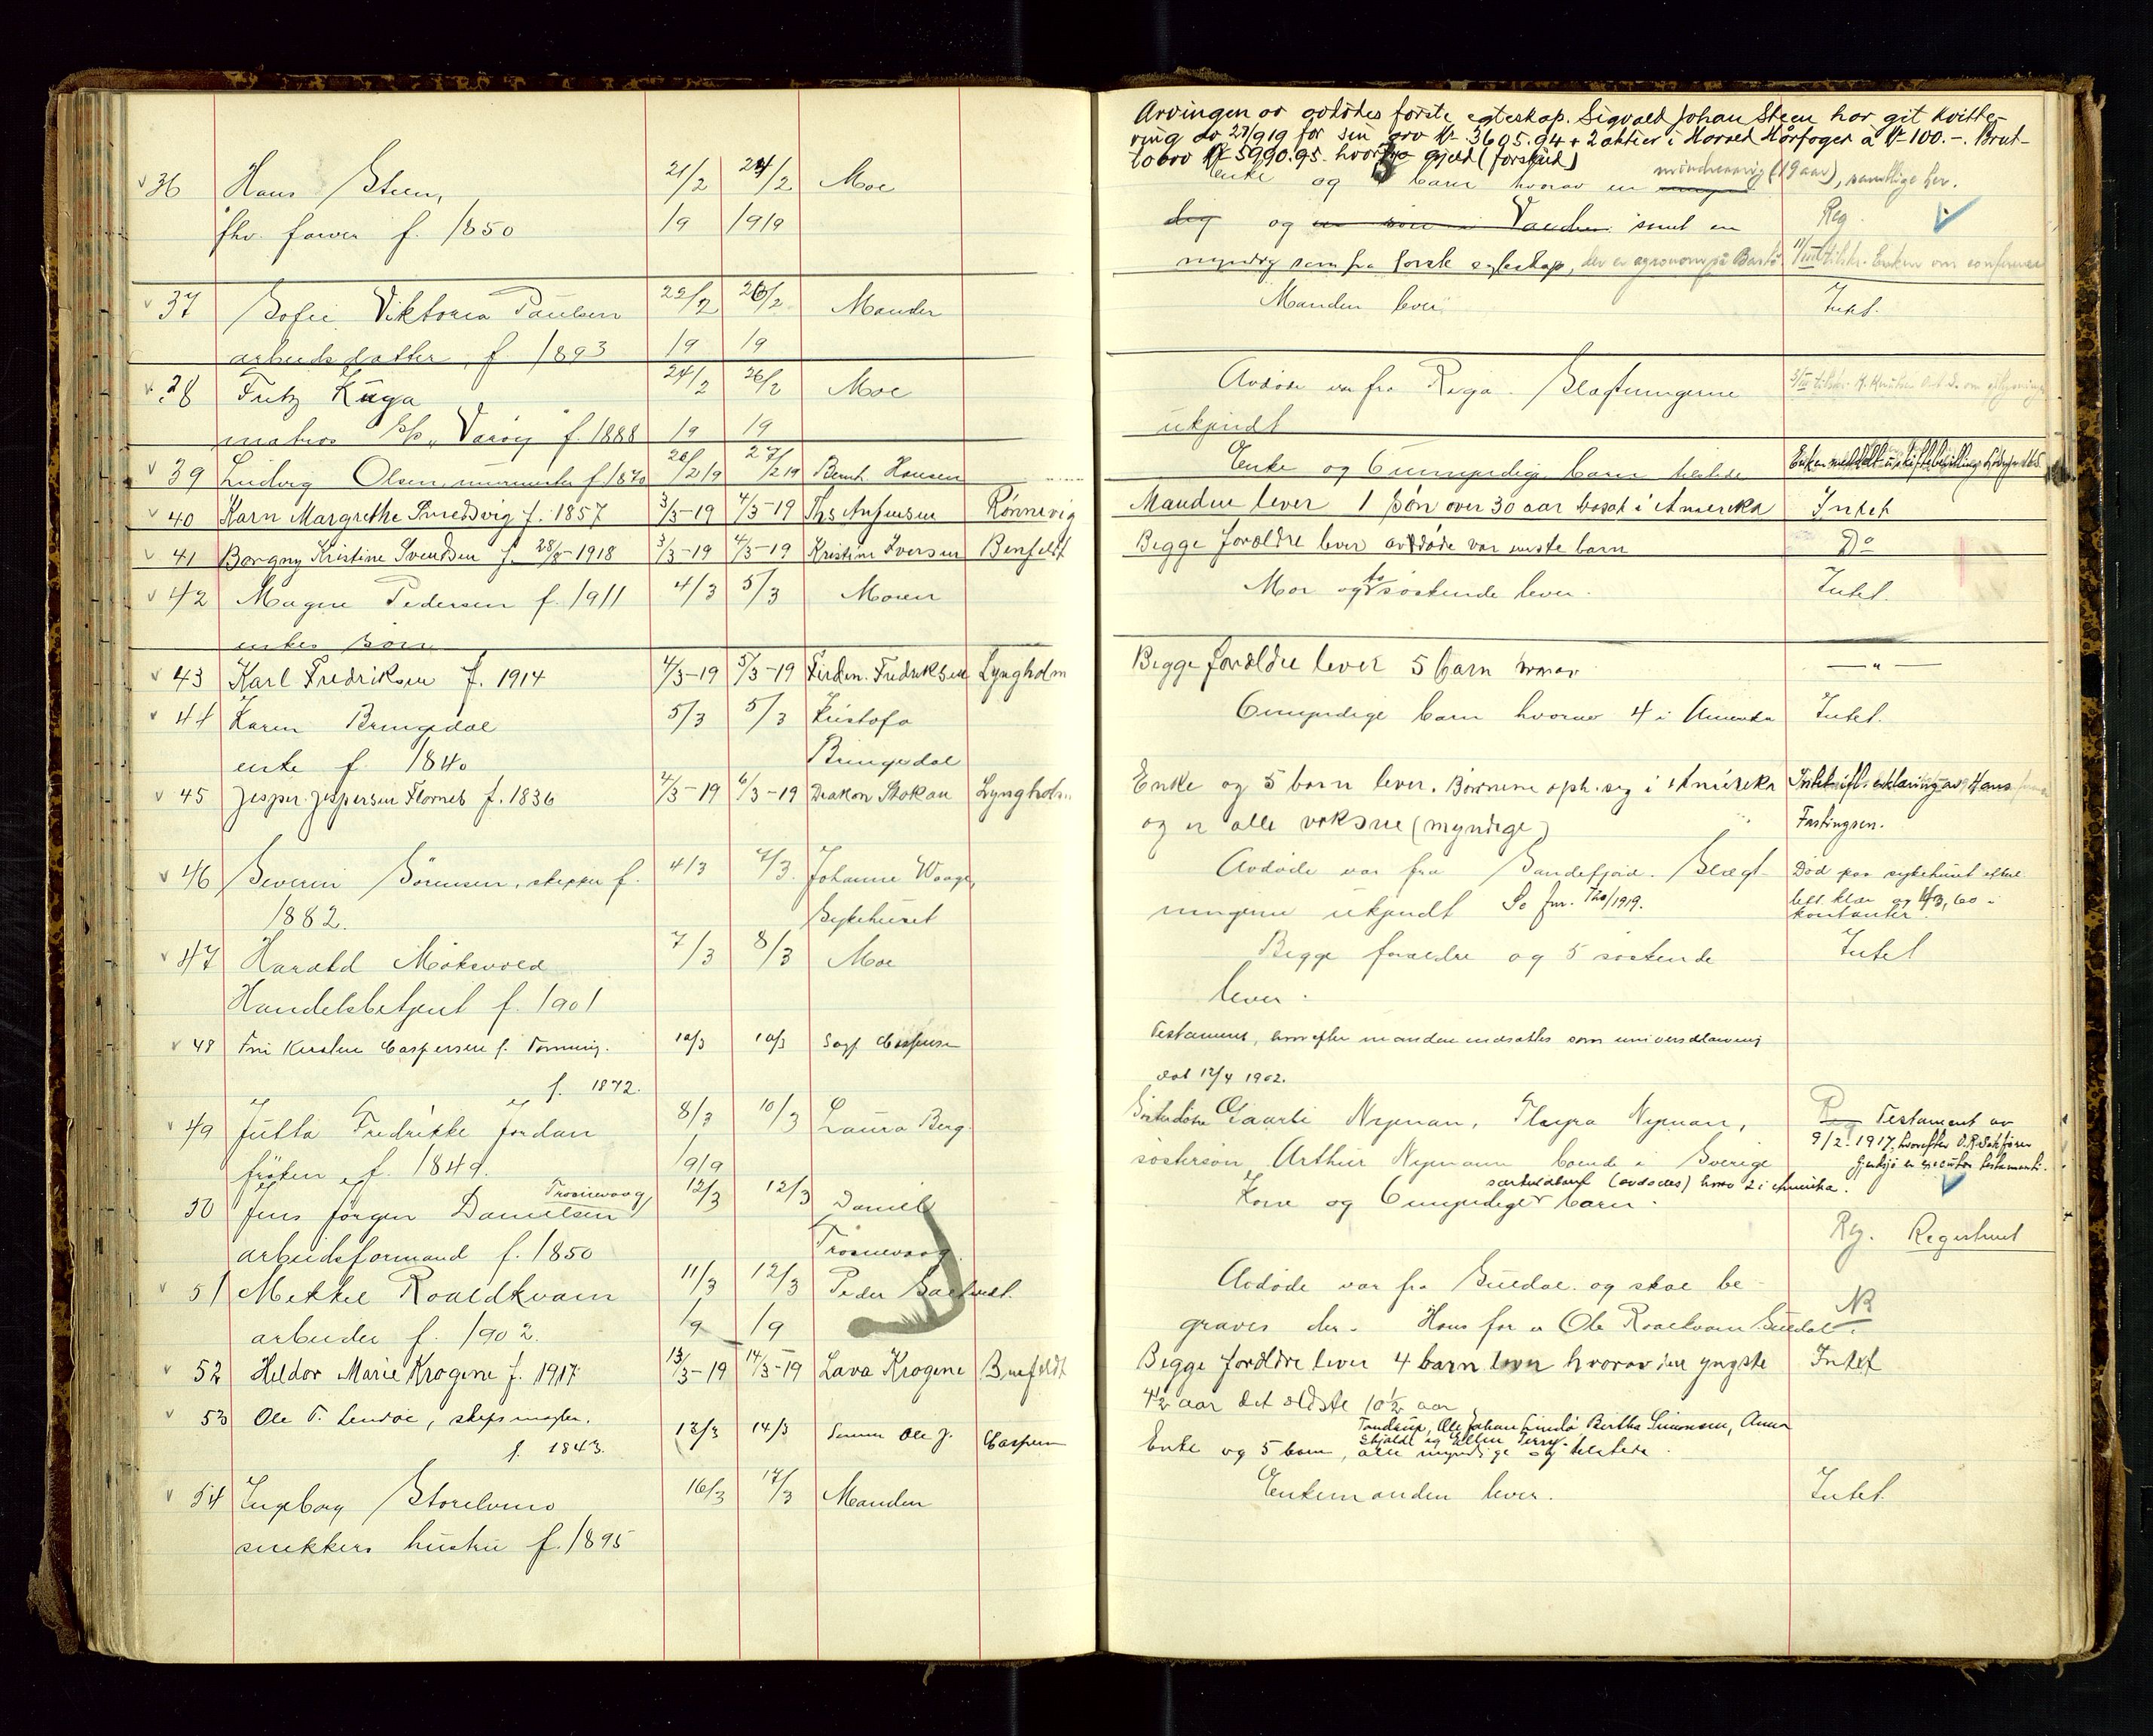 36 Hans Steen, 21/2 24/2 Moe
fhv. farver f. 1850 19 1919
37 Sofie Viktoria Paulsen 22/2 26/2 Manden
arbeids datter, f. 1893 19 19
38 Fritz Kuga 24/2 26/2 Moe
matros S/S "Varöy" f. 1888 19 19
39 Ludvig Olsen, murmester f. 1870 26/2 19 27/2 19 Bernh. Hansen
40 Karn Margrethe Smedsvig f. 1857 3/3-19 4/3-19 Ths Anfinsen Rønnevig
41 Borgny Kristine Svendsen f. 28/8-1918 3/3-19 4/3-19 Kristine Iversen Benfeldt
42 Magne Pedersen f. 1911 4/3 5/3 Moren
enkes sön
43 Karl Fredriksen f. 1914 4/3-19 5/3-19 Ferdin. Fredriksen Lyngholm
44 Karen Bringedal 5/3 5/3 Kristofa
enke f. 1840 Bringedal
45 Jesper Jespersen Flornes f. 1836 4/3-19 6/3-19 Diakon Stokan Lyngholm
46 Severin Sörensen, skipper f. 4/3 7/3. Johanne Waage,
1882. Sykehuset
47 Harald Mökevold 7/3 8/3 Moe
Handelsbetjent f. 1901
48 Fru Kirsten Caspersen f. 10/3 10/3 Sagf. Caspersen
f. 1872.
49 Jutta Fredrikke Jordan 8/3 10/3 Laura Berg.
fröken f. 1849. 1919
50 Jens Jörgen Danielsen Trosnevaag 12/3 12/3 Daniel
arbeidsformand f. 1850 Trosnevaag.
51 Mekkel Roaldkvam 11/3 12/3 Peder
arbeider f. 1902. 19 19
52 Heldor Marie Krogene f. 1917 13/3-19 14/3-19 Lava Krogene Benfeldt
53 Ole T. Lendøe, skipsmægler, 13/3 14/3 Sønnen Ole J. Caspersen
f. 1843.
54 Ingeborg Storelvmo 16/3 17/3 Manden
snekkers hustru f. 1895
Arvingen av avdødes første egteskap. Sigvald Johan Steen har git kvitte-
ring av 27/9 19 for sin arv kr. 3605.94 + 2 aktier i Harald Hårfager à kr 100.-. Brut-
to arv kr 5990.95. hvorfra gjeld (forskud)
Enke og barn hvorav en mindreaarig (19 aar), samtlige her.
dig og en søn i samt en Reg.
myndig søn fra første egteskap, der er agronom på 11/III tilskr. Enken om
Manden lever Intet.
Avdöde var fra Riga. Slægtningerne
ukjendt
Enke og 6 umyndige barn tilstede Enken meddelt uskiftebevilling
Manden lever 1 sön over 30 aar bosat i Amerika Intet
Begge forældre lever avdöde var eneste barn Do
Mor og to söskende lever. Intet.
Begge forældre lever 5 barn — " —
6 myndige barn hvorav 4 i Amerika Intet.
Enke og 5 barn lever. Börnene oph. seg i Amerika Intet ifl. erklæring av Hans
og er alle voksne (myndige) Fastingsen.
Avdöde var fra Sandefjord. Slægt- Död paa sykehuset efterl.
ningerne ukjendt Se jnr. 720/1919. litt klær og kr 3,60 i
kontanter.
Begge forældre og 5 söskende Intet
lever.
Testament, hvorefter manden indsættes som universalarving
dat 12/4 1902.
Sösterdøtre Gaarli Nyman, Thyra Nyman, Reg Testament av
søstersön, Arthur Nyman boende i Sverige 9/2 1917, hvorefter O.R.Sakfører
er executor testamenti.
særkuldbarn (avdødes) hvorav 2 i Amerika.
Kone og 6 umyndige barn. Reg. Registrert
Avdöde var fra Suldal. og skal be-
graves der. Hans far er Ole Roalkvam Suldal. NB
Begge foreldre lever 4 barn hvorav den yngste Intet
4½ aar det eldste 10½ aar
Tandrup, Ole Johan Lindö, Birthe Simonsen, Anna
Skjolde og Ellen Terry.
Enke og 5 barn, alle myndige og tilstede.
Enkemanden lever. Intet.